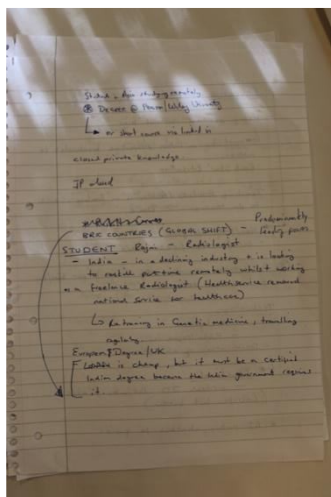 Student, from studying remotely
Degree @ Pearson/Wiley University
or short course via linked in
closed private knowledge
IP cloud
BRIC COUNTRIES (GLOBAL SHIFT) - Predominantly
leading power
STUDENT Rajni - Radiologist
- India - in a declining industry & is looking
to reskill part-time remotely whilst working
as a freelance Radiologist (Health service removed
national service for healthcare)
Retraining in Genetic medicine, travelling
regularly
European Degree/UK
is cheap, but it must be a certified
Indian degree because the India government requires
it.